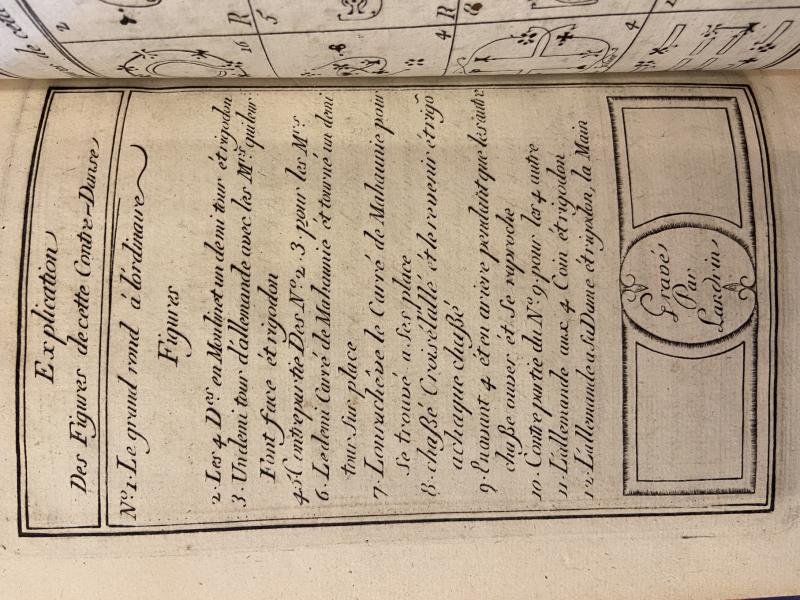 Explication
Des Figures de cette Contre-Danse
N.º 1. Le grand rond à l'ordinaire
Figures
2. Les 4 D.es en Moulinet un demi tour et rigodon
3. Un demi tour d'allemande avec les M.rs qui leur
Font face et rigodon
4.5. Contrepartie Des N.º 2. 3. pour les M.rs
6. Le demi Carré de Mahaunie et tourné un demi
tour Sur place
7. L'on rachêve le Carré de Mahaunie pour
Se trouvé a Ses place
8. chaßé Croisé l'allé et le revenir et rigõ
a chaque chaßé
9. En avant 4 et en ariere pendant que les autre
chaße ouver et Se raproche
10. Contre partie du N.º 9. pour les 4 autre
11. L'allemande aux 4 Coin et rigodon
12. L'allemande a Sa Dame et rigodon, la Main
Gravé
Par
Landrin